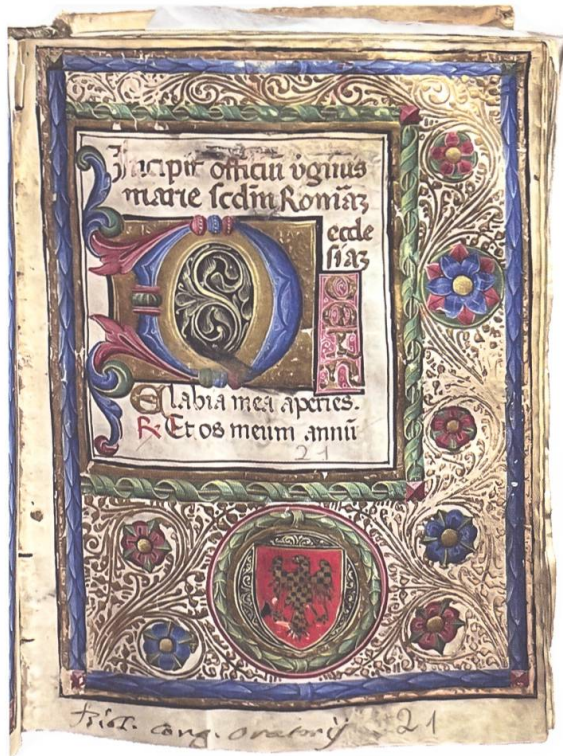 Incipit officiū v̄ginis
marie scdm̄ Romāꝫ
eccle
siaꝫ
D
OMIN
E labia mea aperies.
℟ Et os meum annū
21
Cong. Oratorij 21